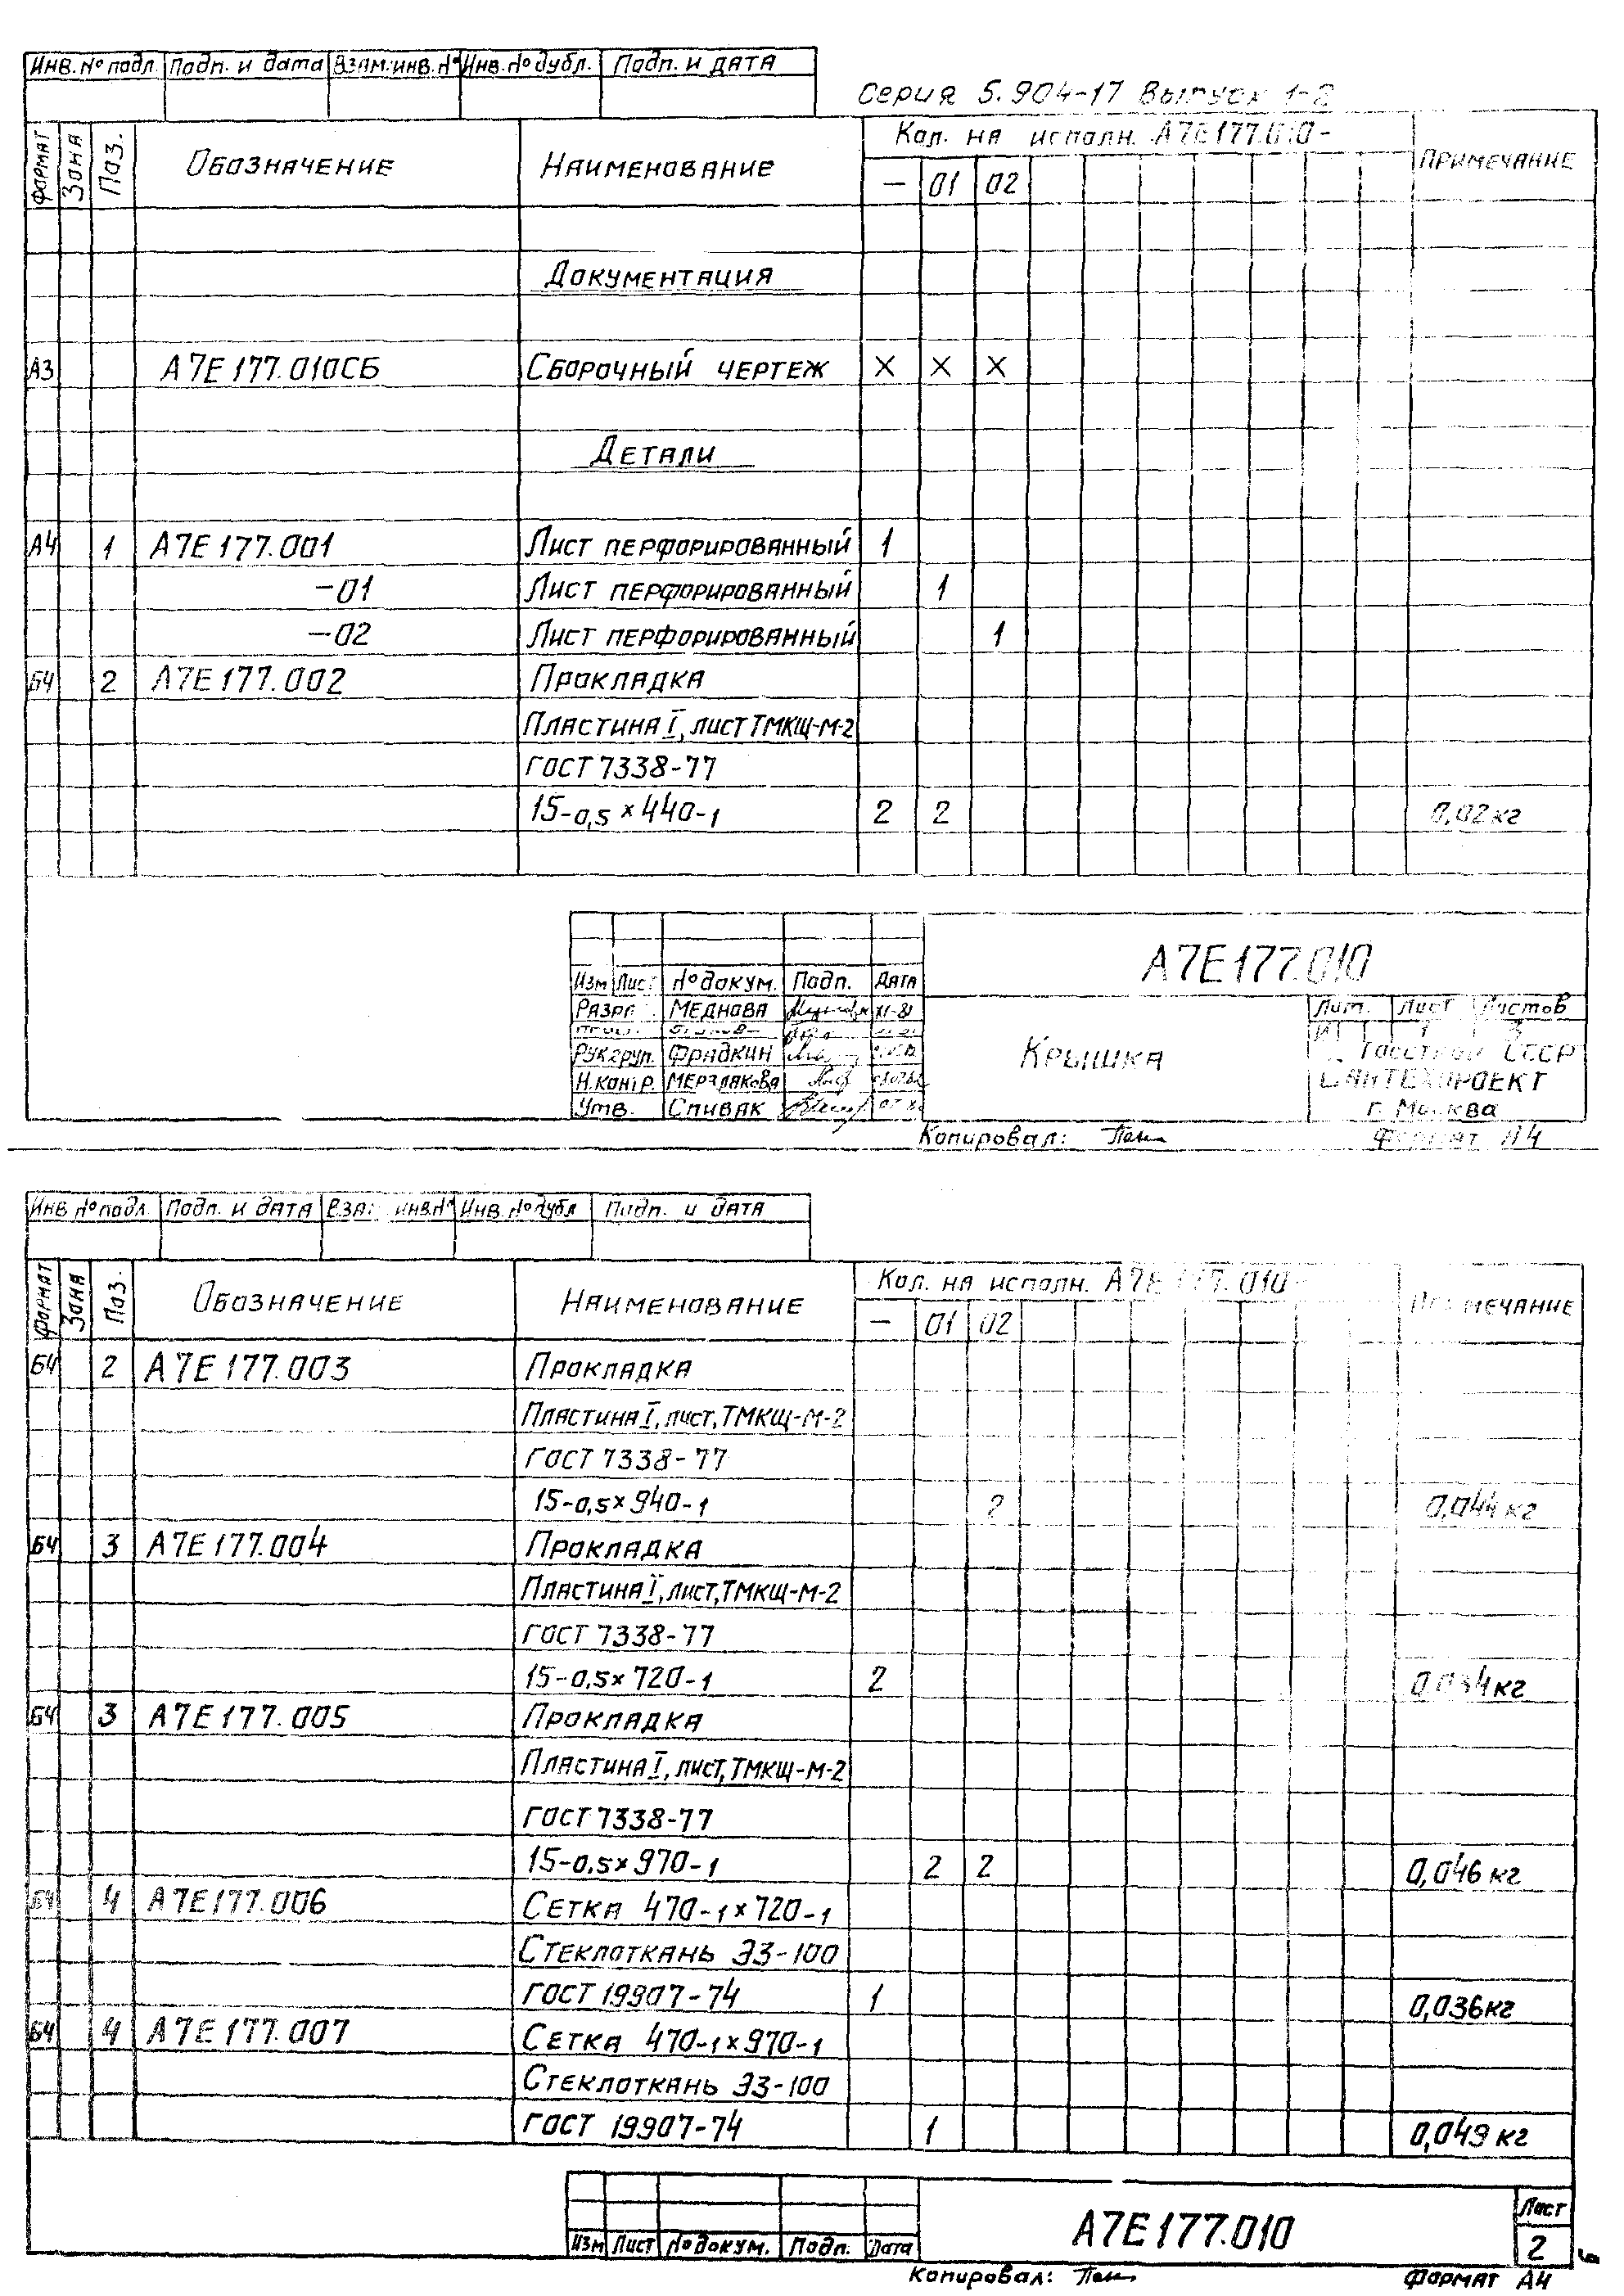 Инв.№ подл. Подп. и дата Взам.инв.№ Инв.№ дубл. Подп. и дата
Серия 5.904-17 Выпуск 1-2
Формат Зона Поз. Обозначение Наименование Кол. на исполн. А7Е177.010- Примечание
— 01 02
Документация
А3 А7Е177.010СБ Сборочный чертеж × × ×
Детали
А4 1 А7Е177.001 Лист перфорированный 1
-01 Лист перфорированный 1
-02 Лист перфорированный 1
БЧ 2 А7Е177.002 Прокладка
Пластина I, лист ТМКЩ-М-2
ГОСТ 7338-77
15-0,5×440-1 2 2 0,02кг
А7Е177.010
Изм Лист № докум. Подп. Дата
Разр. Меднова XI-81
Рук.груп. Фрадкин
Н.контр. Мерзлякова
Утв. Спивак
Крышка
Лит. Лист Листов
И 1 3
Госстрой СССР
Сантехпроект
г. Москва
Копировал: Формат А4
Инв № подл. Подп. и дата Взам. инв.№ Инв.№ дубл Подп. и дата
Формат Зона Поз. Обозначение Наименование Кол. на исполн. А7Е177.010- Примечание
— 01 02
БЧ 2 А7Е177.003 Прокладка
Пластина I, лист, ТМКЩ-М-2
ГОСТ 7338-77
15-0,5×940-1 2 0,044кг
БЧ 3 А7Е177.004 Прокладка
Пластина I, лист, ТМКЩ-М-2
ГОСТ 7338-77
15-0,5×720-1 2 0,034кг
БЧ 3 А7Е177.005 Прокладка
Пластина I, лист, ТМКЩ-М-2
ГОСТ 7338-77
15-0,5×970-1 2 2 0,046кг
БЧ 4 А7Е177.006 Сетка 470-1×720-1
Стеклоткань ЭЗ-100
ГОСТ 19907-74 1 0,036кг
БЧ 4 А7Е177.007 Сетка 470-1×970-1
Стеклоткань ЭЗ-100
ГОСТ 19907-74 1 0,049кг
Изм Лист № докум. Подп. Дата
А7Е177.010
Лист
2
Копировал: Формат А4